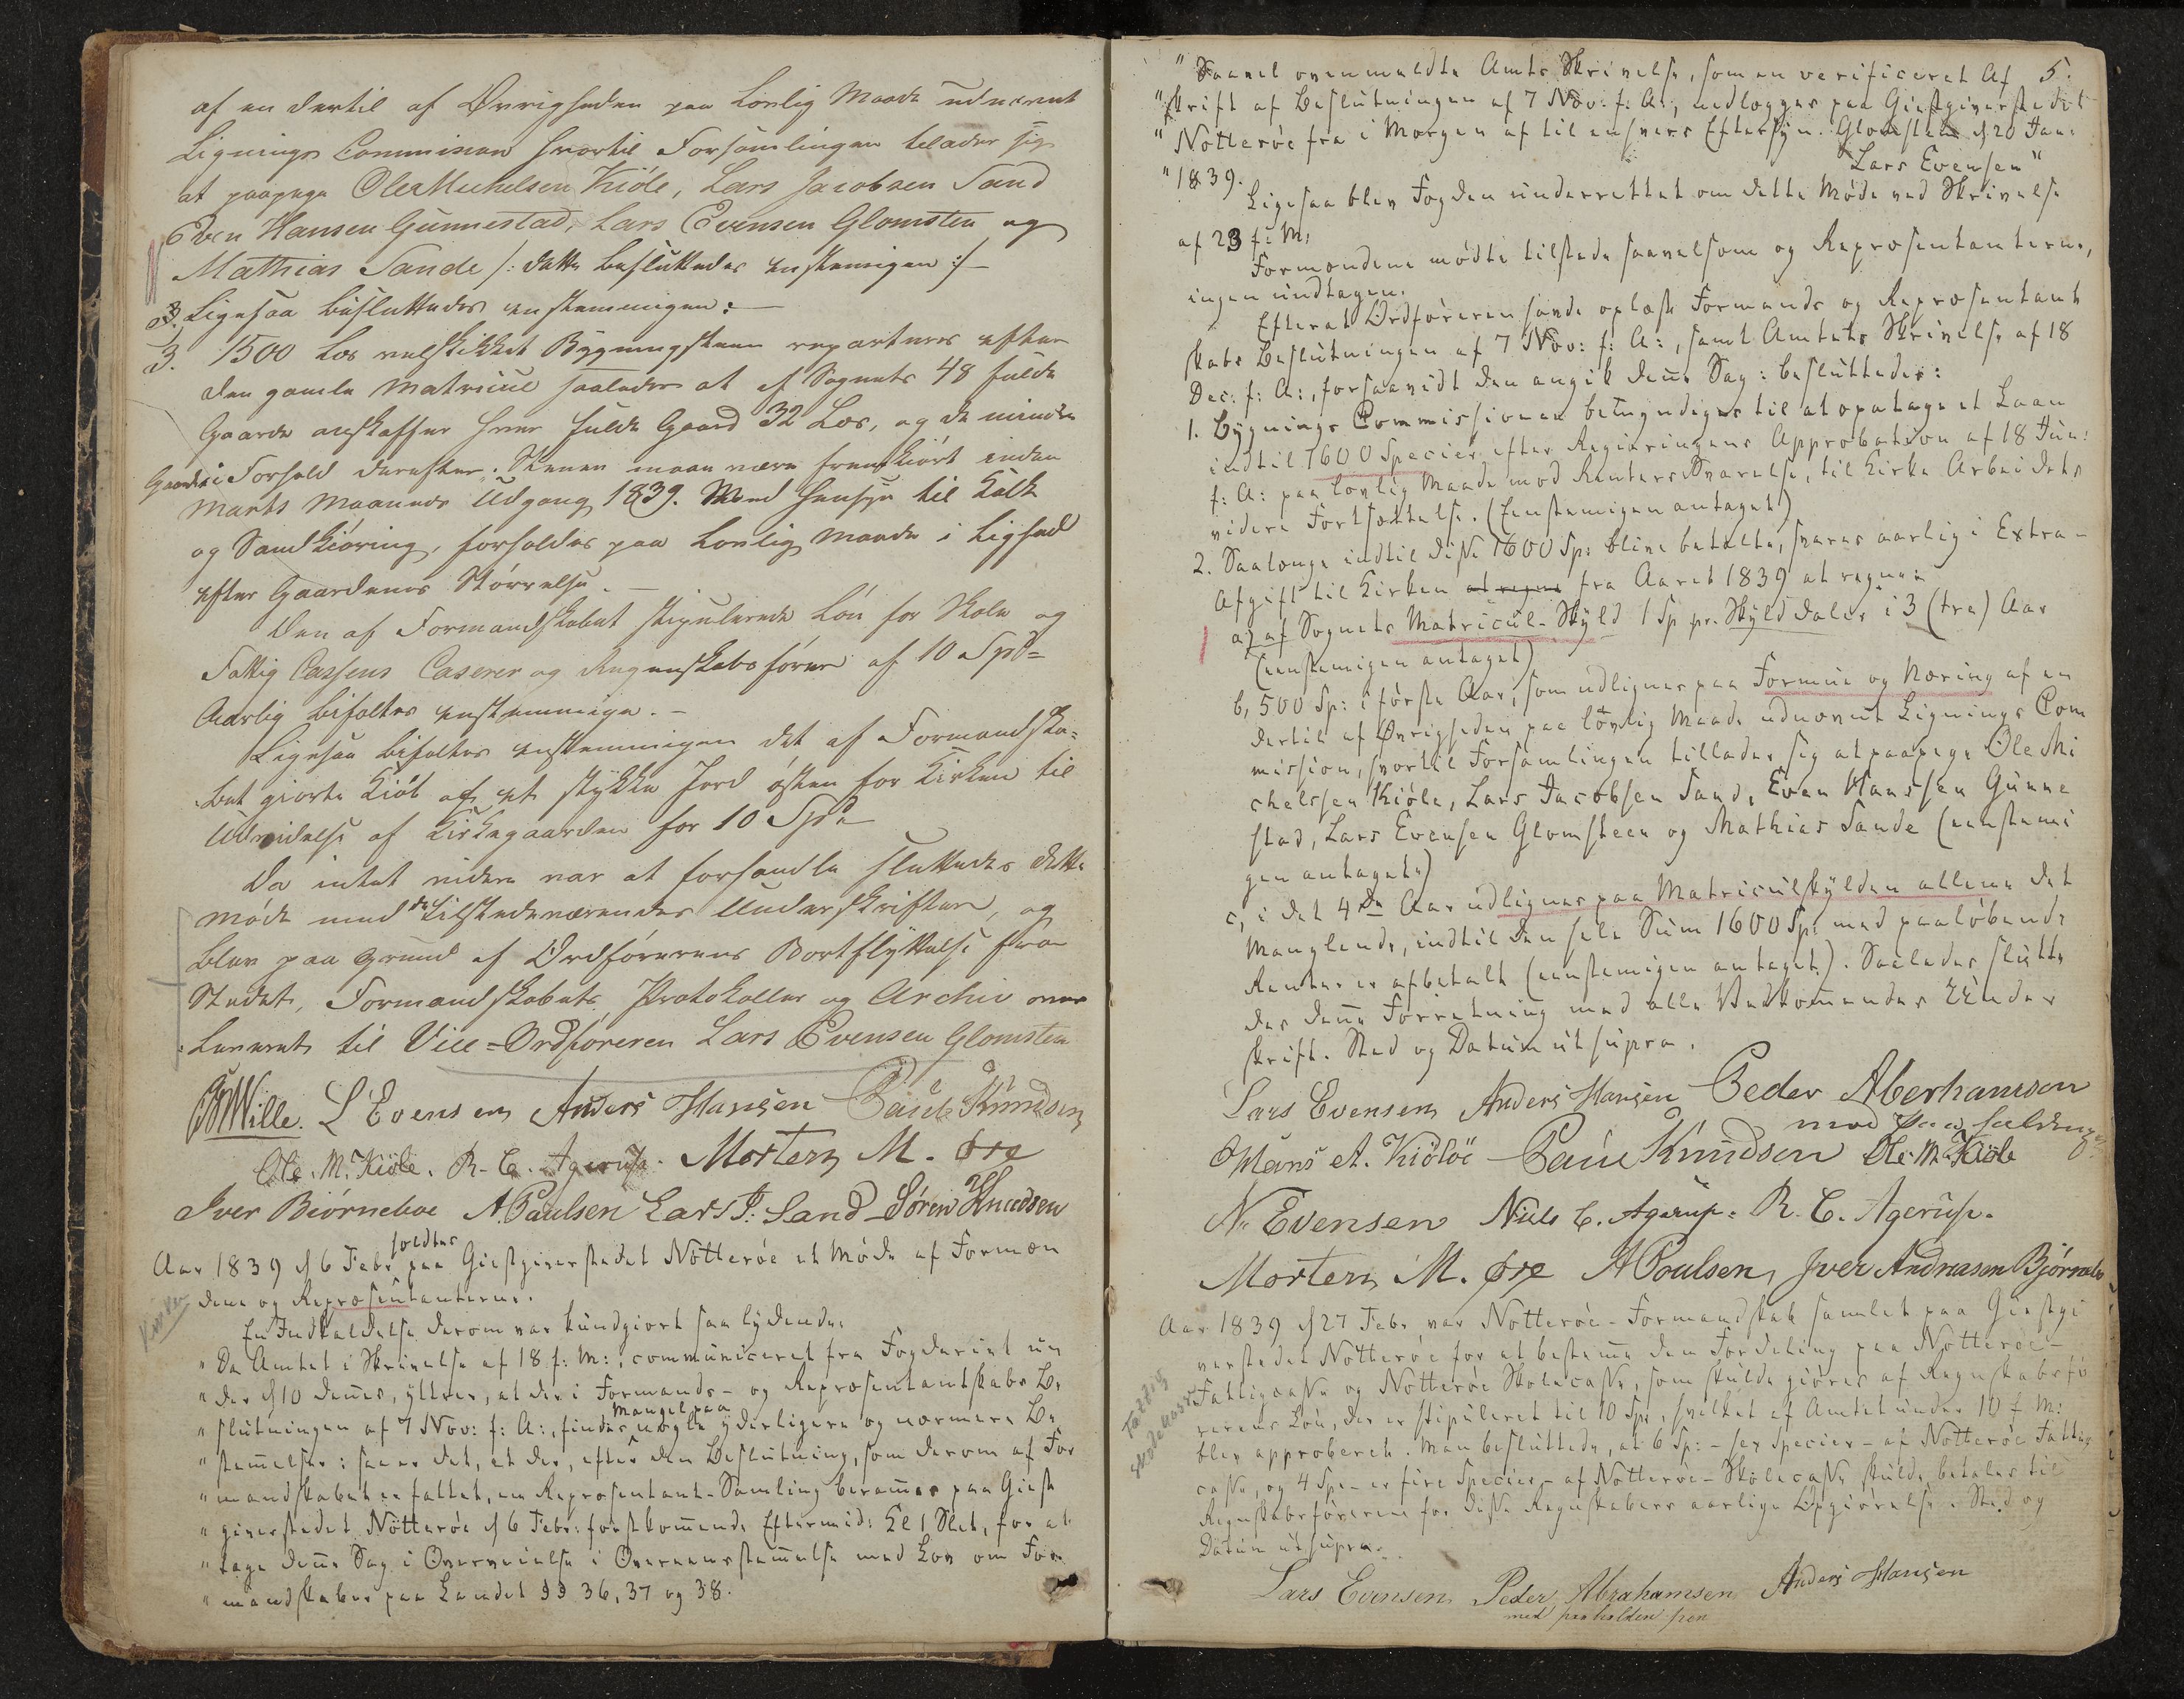 af en dertil af Øvrigheden paa Lovlig Maade udnævnt
Lignings Commision hvortil Forsamlingen tilader sig
at paapege Ole Michelsen Kiøle, Lars Jacobsen Sand
Even Hansen Gunnestad, Lars Evensen Glomsten og
Mathias Sande /: dette besluttedes enstemmigen :/
Ligesaa besluttedes enstemmigen:
3. 1500 Læs velskikket Bygningssteen reparteres efter
den gamle Matricul saaledes at af Sognets 48 fulde
Gaarde anskaffer hver fulde Gaard 32 Læs, og de mindre
Gaarde i Forhold derefter. Stenen maae være fremkiørt inden
Marts Maaneds Udgang 1839. Med Hensyn til Kalk
og Sandkiøring, forholdes paa Lovlig Maade i Lighed
efter Gaardenes Størrelse.
Den af Formandskabet stipulerede Løn for Skole og
Fattig Cassens Caserer og Regenskabsfører af 10 Spd
Aarlig bifaltes enstemmige.
Ligesaa bifaltes enstemmigen det af Formandska-
bet giorte Kiøb af et stykke Jord østen for Kirken til
Udvidelse af Kirkegaarden for 10 Spd
Da intet videre var at forhandle sluttedes dette
møde med de Tilstedeværendes Underskrifter, og
blev paa grund af Ordførerens Bortflyttelse fra
Stedet, Formandskabets Protokoller og Archiv over
leveret til Vice-Ordføreren Lars Evensen Glomsten
Wille. L Evensen Anders Hansen Paul Knudsen
Ole. M. Kiøle. R. C. Agerup. Morten M. Øre
Iver Biørneboe A. Paulsen Lars J. Sand Søren Knudsen
Aar 1839 d 6 Febr holdtes paa Giestgiverstedet Nøtterøe et Møde af Formæn
dene og Repræsentanterne.
En Indkaldelse derom var kundgiort saa lydende:
"Da Amtet i Skrivelse af 18 f: M:, communiceret fra Fogderiet un
"der d 10 dennes, yttrer, at der i Formands- og Repræsentantskabs Be
"slutningen af 7 Nov: f: A:, findes Mangel paa nogle yderligere og nærmere Be
"stemmelser: saa er det, at der, efter den Beslutning, som derom af For
"mandskabet er fattet, en Repræsentant-Samling berammes paa Giest
"giverstedet Nøtterøe d 6 Febr: førstkommende Eftermid: Kl 1 Slet, for at
"tage denne Sag i Overveielse i Overeensstemmelse med Lov om For
"mandskaber paa Landet §§ 36, 37 og 38.
5.
"Saavel ovenmeldte Amts Skrivelse, som en verificeret Af
"skrift af Beslutningen af 7 Nov: f: A:, nedlægges paa Giestgiverstedet
"Nøtterøe fra i Morgen af til enhvers Eftersyn. Glomsteen d 20 Jan:
"1839. Lars Evensen"
Ligesaa blev Fogden underrettet om dette Møde ved Skrivelse
af 23 f: M:
Formændene mødte tilstede saavelsom og Repræsentanterne,
ingen undtagen.
Efterat Ordføreren havde oplæst Formands og Repræsentant
skabs Beslutningen af 7 Nov: f: A:, samt Amtets Skrivelse af 18
Dec: f: A:, forsaavidt den angik denne Sag: besluttedes:
1. Bygnings Commissionen bemyndiges til at opatage et Laan
indtil 1600 Specier efter Regieringens Approbation af 18 Jun:
f: A: paa lovlig Maade mod Renters Svarelse, til Kirke Arbeidets
videre Fortsættelse. (Eenstemigen antaget)
2. Saalænge indtil disse 1600 Sp: blive betalte, svares aarlig i Extra-
Afgift til Kirken at regne fra Aaret 1839 at regne:
a, af Sognets Matricul-Skyld 1 Sp pr. Skylddaler i 3 (tre) Aar
(eenstemigen antaget)
b, 500 Sp: i første Aar, som udlignes paa Formue og Næring af en
dertil af Øvrigheden paa lovlig Maade udnævnt Lignings Com
mission, hvortil Forsamlingen tillader sig at paapege Ole Mi
chelssen Kiøle, Lars Jacobsen Sand, Even Hanssen Gunne
stad, Lars Evensen Glomsteen og Mathias Sande (eenstemi
gen antaget.)
c, i det 4de Aar udlignes paa Matriculskylden allene det
Manglende, indtil den hele Sum 1600 Sp: med paaløbende
Renter er afbetalt (eenstemigen antaget.). Saaledes slutte
des denne Forretning med alle Vedkommendes Under
skrift. Sted og Datum ut supra.
Lars Evensen Anders Hansen Peder Aberhamsen
med Paa holden
Hans A. Kiøløe Paul Knudsen Ole. M. Kiøle
N. Evensen Niels C. Agerup. R. C. Agerup.
Morten M. Øre A Poulsen, Iver Andreasen Bjørnebo
Aar 1839 d 27 Febr var Nøtterøe-Formandskab samlet paa Giestgi
verstedet Nøtterøe for at bestemme den Fordeling paa Nøtterøe-
Fattig
Skolekasse
Fattigcasse og Nøtterøe Skolecasse, som skulde giøres af Regnskabsfø
rerens Løn, der er stipuleret til 10 Sp:, hvilket af Amtet under 10 f M:
blev approberet. Man besluttede, at 6 Sp: - sex Specier - af Nøtterøe Fattig
casse, og 4 Sp: - er fire Specier, - af Nøtterøe-Skolecasse skulde betales til
Regnskabsføreren for disse Regnskabers aarlige Opgiørelse. Sted og
Datum ut supra.
Lars Evensen Peder Abrahamsen Anders Hansen
med paaholden pen